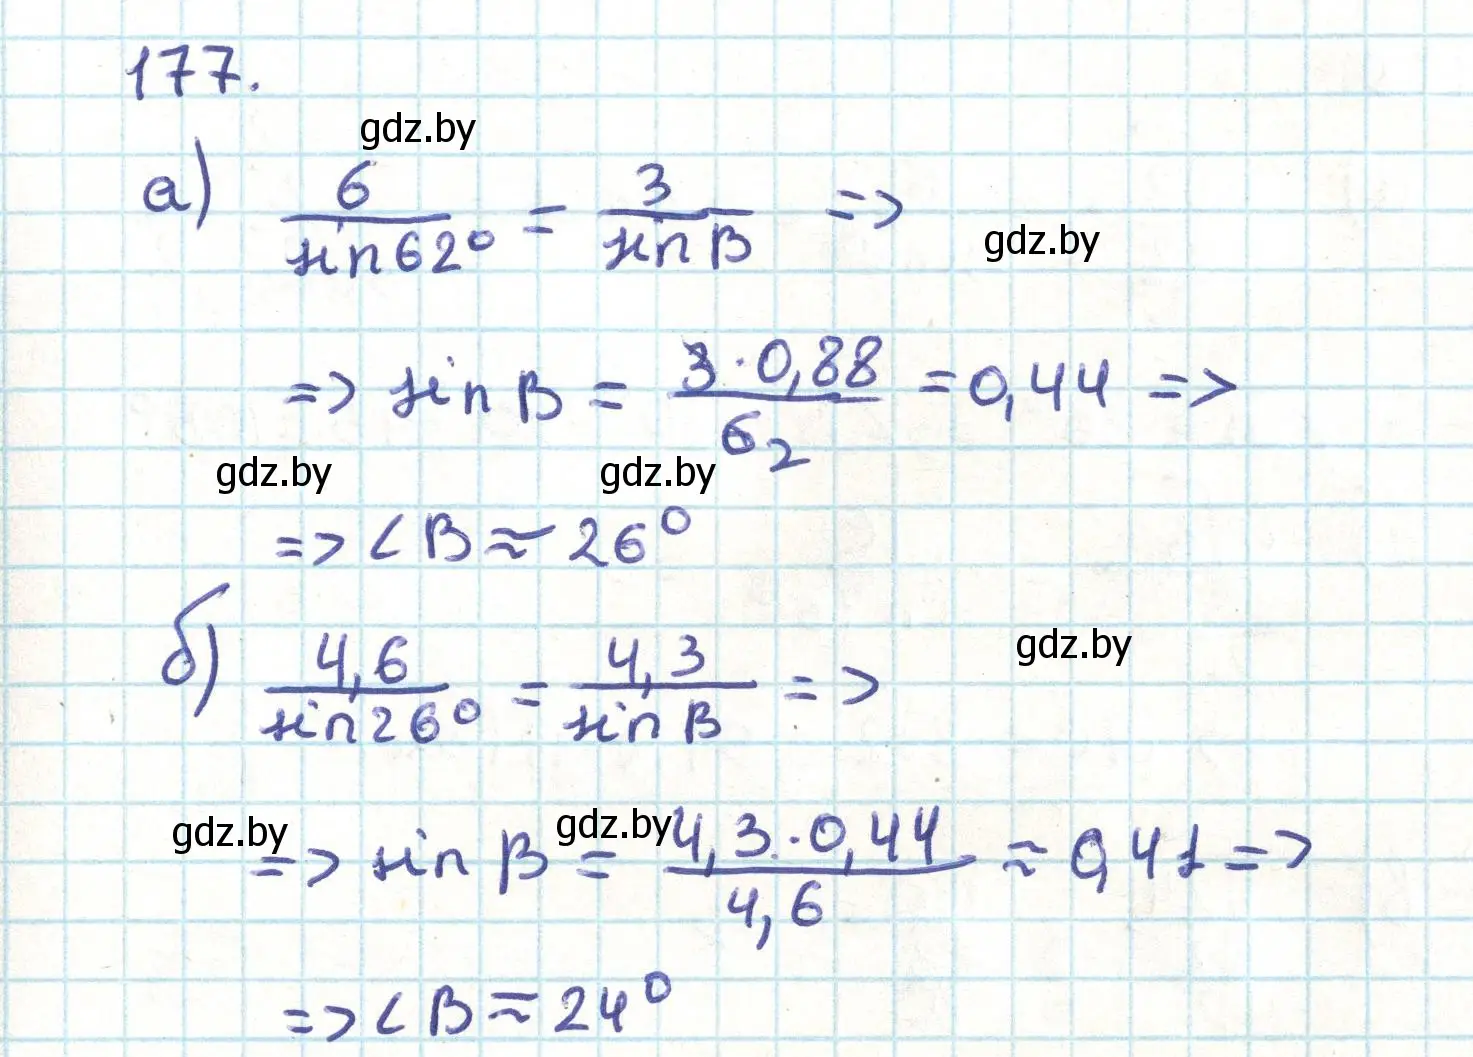 177.
gdz.by
а) 6/sin62° = 3/sinB =>
gdz.by
=> sinB = 3·0,88/6₂ = 0,44 =>
gdz.by gdz.by
=> ∠B ≈ 26°
б) 4,6/sin26° = 4,3/sinB =>
gdz.by
gdz.by gdz.by
=> sinB = 4,3·0,44/4,6 ≈ 0,41 =>
=> ∠B ≈ 24°